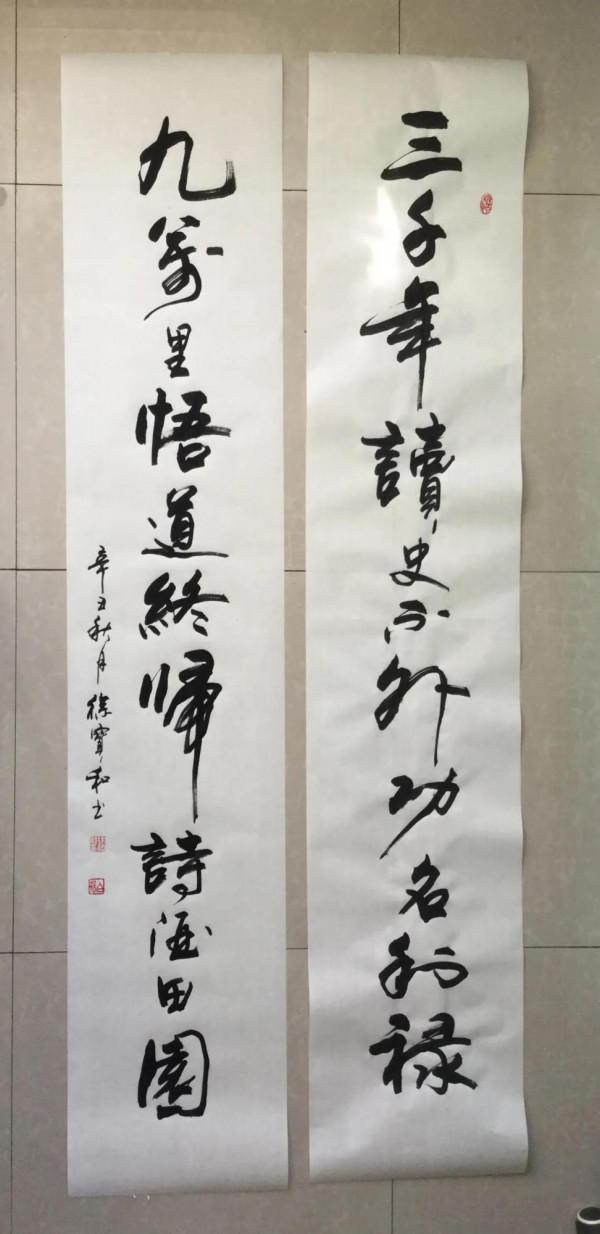 三千年讀史不外功名利禄
九萬里悟道終歸詩酒田園
辛丑秋月徐寶和书